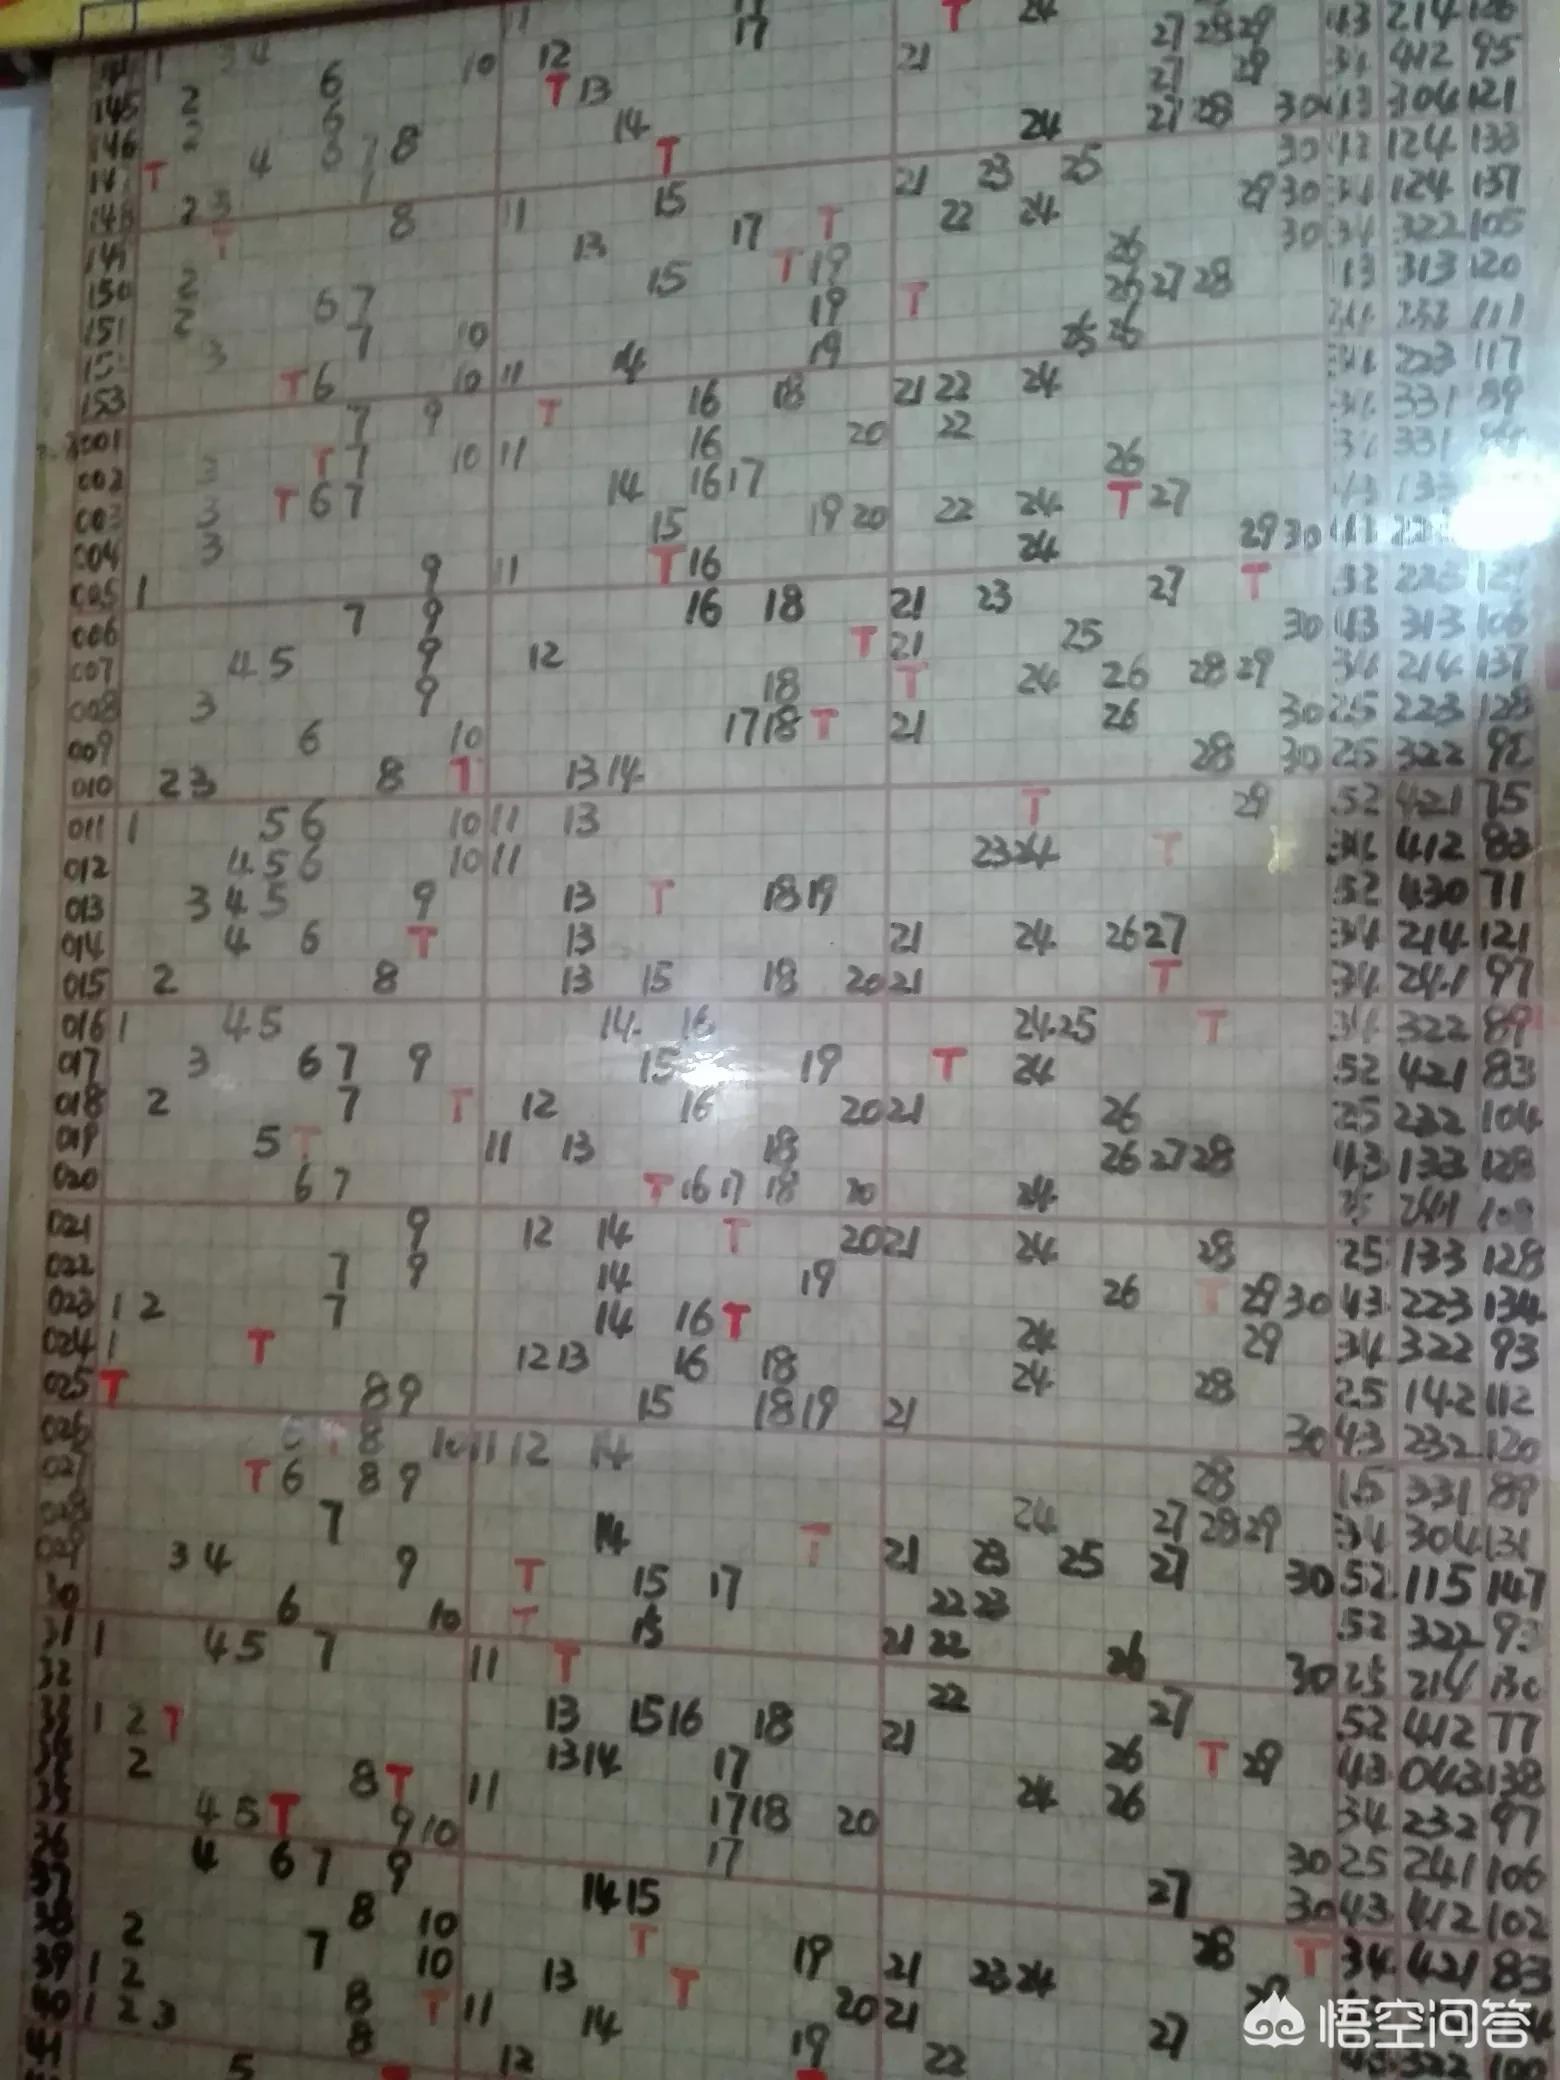 145 2 6 10 12 17 T 24
146 2 6 T 13 21 27 28 29 43 214 126
147 T 4 6 7 8 14 27 29 34 412 95
148 2 3 7 T 24 27 28 30 43 304 121
149 T 8 11 15 21 23 25 30 43 124 133
150 2 13 17 T 22 24 29 30 34 124 137
151 2 6 7 15 T 19 26 30 34 322 105
152 3 7 10 19 T 26 27 28 43 313 120
153 T 6 10 11 14 19 25 26 34 232 111
001 7 9 T 16 18 21 22 24 34 223 117
002 3 T 7 10 11 16 20 22 34 331 89
003 3 T 6 7 14 16 17 26 34 331 89
004 3 15 19 20 22 24 T 27 43 133
005 1 9 11 T 16 24 29 30 43 223
006 7 9 16 18 21 23 27 T 52 223 121
007 4 5 9 12 T 21 25 30 43 313 106
008 3 9 18 T 24 26 28 29 34 214 137
009 6 10 17 18 T 21 26 30 25 223 128
010 2 3 8 T 13 14 28 30 25 322 98
011 1 5 6 10 11 13 T 29 52 421 75
012 4 5 6 10 11 23 24 T 34 412 83
013 3 4 5 9 13 T 18 19 52 430 71
014 4 6 T 13 21 24 26 27 34 214 121
015 2 8 13 15 18 20 21 T 34 241 97
016 1 4 5 14 16 24 25 T 34 322 89
017 3 6 7 9 15 19 T 24 52 421 83
018 2 7 T 12 16 20 21 26 25 232 104
019 5 T 11 13 18 26 27 28 43 133 128
020 6 7 T 16 17 18 20 24 25 241 108
021 9 12 14 T 20 21 24 28 25 133 128
022 7 9 14 19 26 T 29 30 43 223 134
023 1 2 7 14 16 T 24 29 34 322 93
024 1 T 12 13 16 18 24 28 25 142 112
025 T 8 9 15 18 19 21 30 43 232 120
026 6 T 8 10 11 12 14 28 331 89
027 T 6 8 9 24 27 28 29 34 304 131
7 14 T 21 23 25 27 30 52 115 147
3 4 9 T 15 17 22 23 52 322 93
30 6 10 T 15 21 22 26 30 25 214 130
31 1 4 5 7 11 T 22 27 52 412 77
32 13 15 16 18 21 26 T 29 43 043 138
33 1 2 T 13 14 17 24 26 34 232 97
2 8 T 11 17 18 20 30 25 241 106
35 4 5 T 9 10 17 27 30 43 412 102
36 4 6 7 9 14 15 28 T 34 421 83
37 8 10 T 19 21 23 24 29
38 2 7 10 13 T 20 21 27 43 322 100
39 1 2 8 T 11 14 19 22
40 1 2 3 8 12
41 5
悟空问答